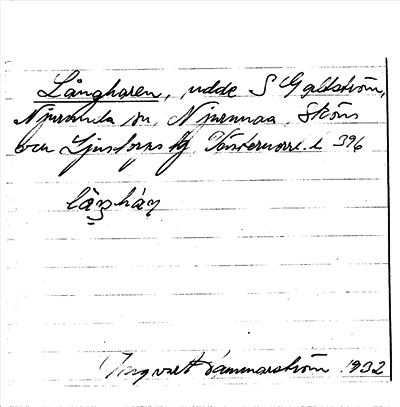 Långharen, udde S Galtström,
Njurunda sn, Njurunda, Sköns
och Ljustorps tg Västernorrl. l 396
Ingvart Dammarström 1932